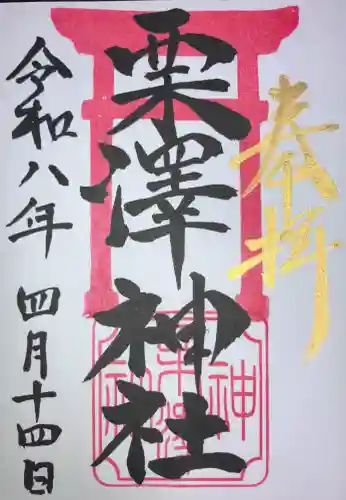 奉拝
栗澤神社
令和八年 四月十四日